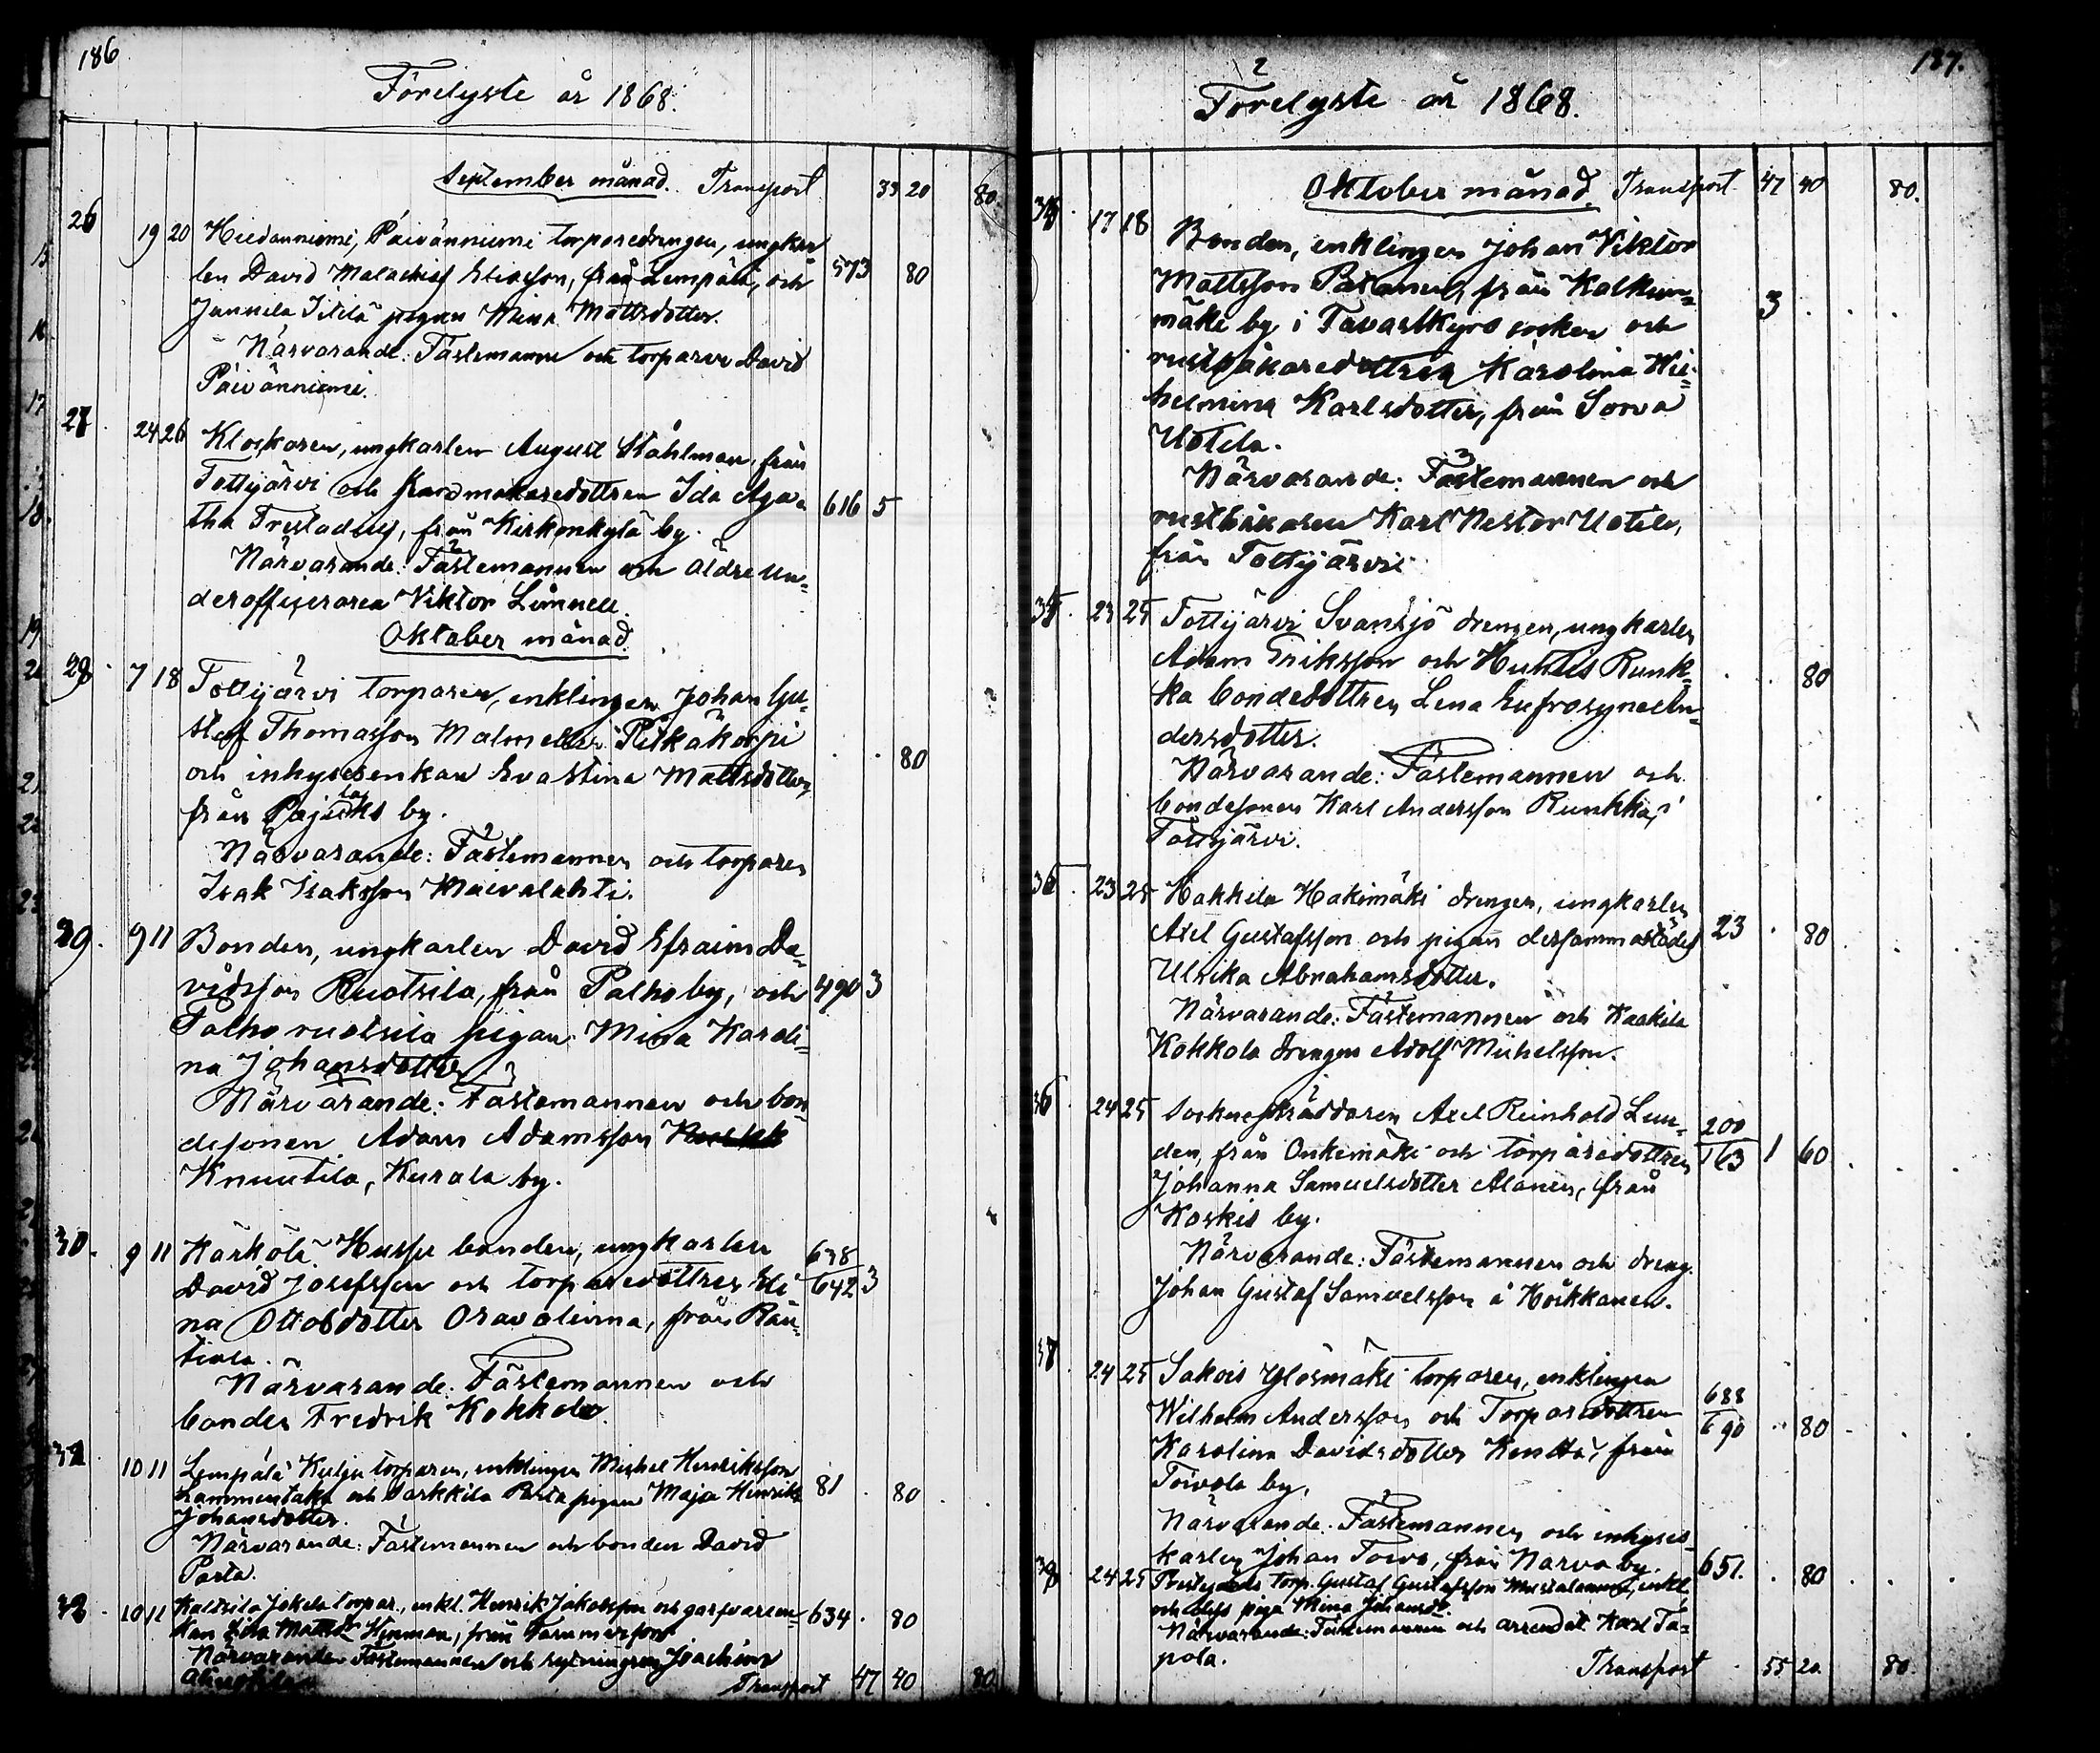 186
Förelyste år 1868.
September månad. Transport 33 20 80.
26 19 20 Hiedanniemi, Päivänniemi torparedrengen, ungkar
len David Malachias Eliasson, från Lempälä, och 573 80
Junnila Itilä pigan Mina Mattsdotter.
Närvarande: Fästemannen och torparen David
Päivänniemi.
27. 24 26 Klockaren, ungkarlen August Ståhlman, från
Tottijärvi och dottren Ida Aga- 616 5
tha från Kirkonkylä by.
Närvarande: Fästemannen och äldre un-
derofficeraren Viktor Limnell.
Oktober månad.
28 7 18 Tottijärvi torparen, enklingen Johan Gu-
staf Thomasson Malmelin Pitkäkorpi
och inhysesenkan Eva Stina Mattsdotter, 80
från by.
Närvarande: Fästemannen och torparen
Isak Isaksson Maivalahti.
29. 9 11 Bonden, ungkarlen David Efraim Da-
vidsson Ruotsila, från Palho by, och 490 3
Palho ruotsila pigan Mina Karoli-
na Johansdotter
Närvarande: Fästemannen och bon-
desonen Adam Adamsson
Knuutila, Kurala by.
30. 9 11 Kärkölä Hussu bonden, ungkarlen 638
David Josefsson och torparedottren Eli 642 3
na Ottosdotter Oravalinna, från Rau-
tiala.
Närvarande: Fästemannen och
bonden Fredrik Kokkola.
31 10 11 Lempälä Kulju torparen, enklingen Michel Henriksson
Lammentaka och Sarkkila Parta pigan Maja Henrika 81 . 80
Johansdotter.
Närvarande: Fästemannen och bonden David
Parta.
32 10 11 Jokela torpar., enkl. Henrik Jakobsson och 634. 80
kan Lisa Mattsdr Hinman, från
Närvarande Fästemannen och Joachim
Transport 47 40 80.
187.
Förelyste år 1868.
Oktober månad. Transport 47 40 80.
34. 17 18 Bonden, enklingen Johan Viktor
Mattsson från Kalkun-
mäki by i Tavastkyro socken och 3 . . .
rusthållaredottren Karolina Wil-
helmina Karlsdotter, från Sorva
Uotila.
Närvarande: Fästemannen och
rusthållaren Karl Nestor Uotila,
från Tottijärvi
35. 23 25 Tottijärvi Svansjö drengen, ungkarlen
Adam Eriksson och Huhtis Runk-
ka bondedottren Lena Eufrosyne An- . . 80
dersdotter.
Närvarande: Fästemannen och
bondesonen Karl Andersson Runkka, i
Tottijärvi.
36. 23 25 Hakkila Hakimäki drengen, ungkarlen
Axel Gustafsson och pigan dersammastädes 23 . 80
Ulrika Abrahamsdotter.
Närvarande: Fästemannen och Haakila
Kokkola drengen Adolf Michelsson.
36 24 25 Sockneskräddaren Axel Reinhold Lun- 200
den, från Onkemäki och torparedottren 163 1 60
Johanna Samuelsdotter Alanen, från
Koskis by.
Närvarande: Fästemannen och dreng.
Johan Gustaf Samuelsson å Hörkkanen.
37 24 25 Sakois Ylösmäki torparen, enklingen 688
Wilhelm Andersson och Torparedottren 690 80
Karolina Davidsdotter Kenttä, från
Toivola by.
Närvarande: Fästemannen och inhyses-
karlen Johan Toivo, från Narva by.
38 24 25 Prestgårds torp. Gustaf Gustafsson enkl. 651. . 80
och dess piga Mina Johansdr.
Närvarande: Fästemannen och arrendat. Karl Ta-
pola.
Transport 55 20. 80.